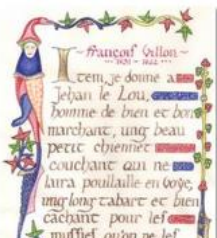 ~ françois Villon ~
~ 1431 - 1462 ~
Item, je donne a
Jehan le Lou,
homme de bien et bon
marchant, ung beau
petit chiennet
couchant qui ne
laira poullaille en voye,
ung long tabart et bien
cachant pour les
mussier qu'on ne les